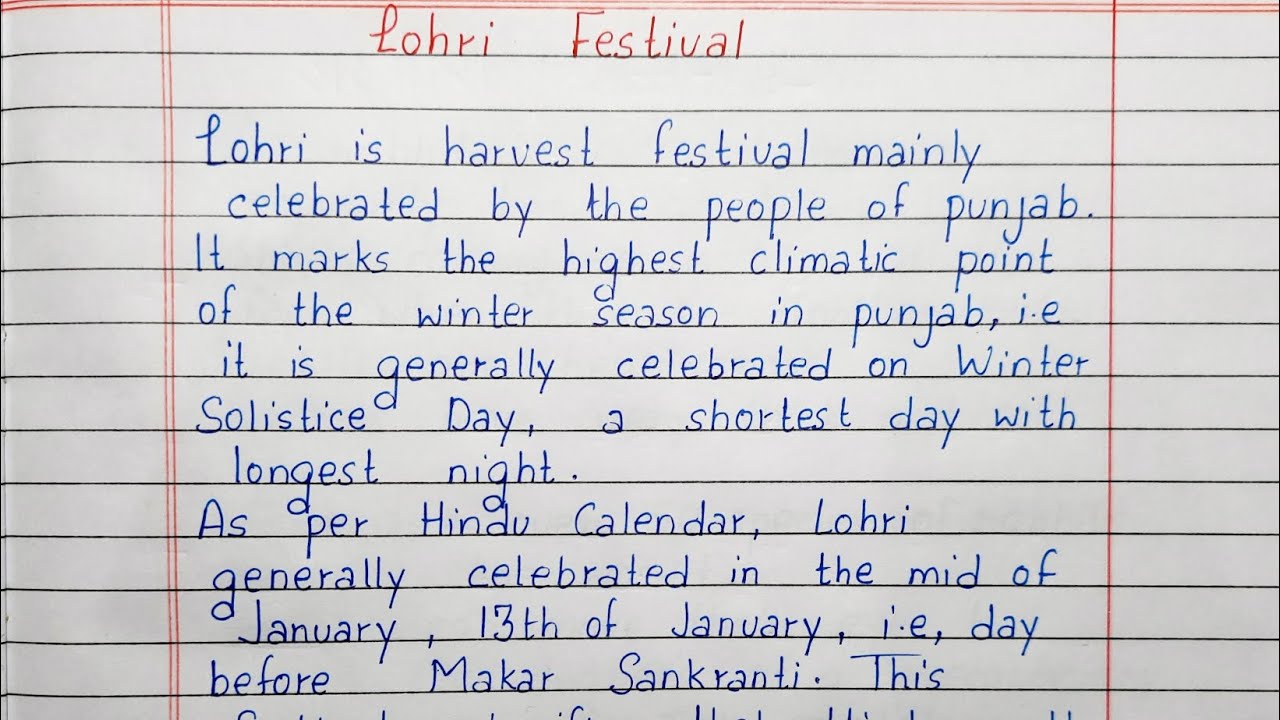 Lohri Festival
Lohri is harvest festival mainly
celebrated by the people of punjab.
It marks the highest climatic point
of the winter season in punjab, i.e
it is generally celebrated on Winter
Solistice Day, a shortest day with
longest night.
As per Hindu Calendar, Lohri
generally celebrated in the mid of
January, 13th of January, i.e, day
before Makar Sankranti. This